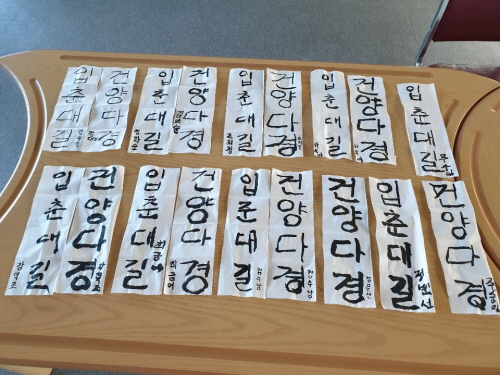 입춘대길
건양다경
입춘대길
건양다경
입춘대길
건양다경
입춘대길
건양다경
입춘대길
입춘대길
건양다경
입춘대길
건양다경
입준대길
건양다경
건양다경
입춘대길
건양다경